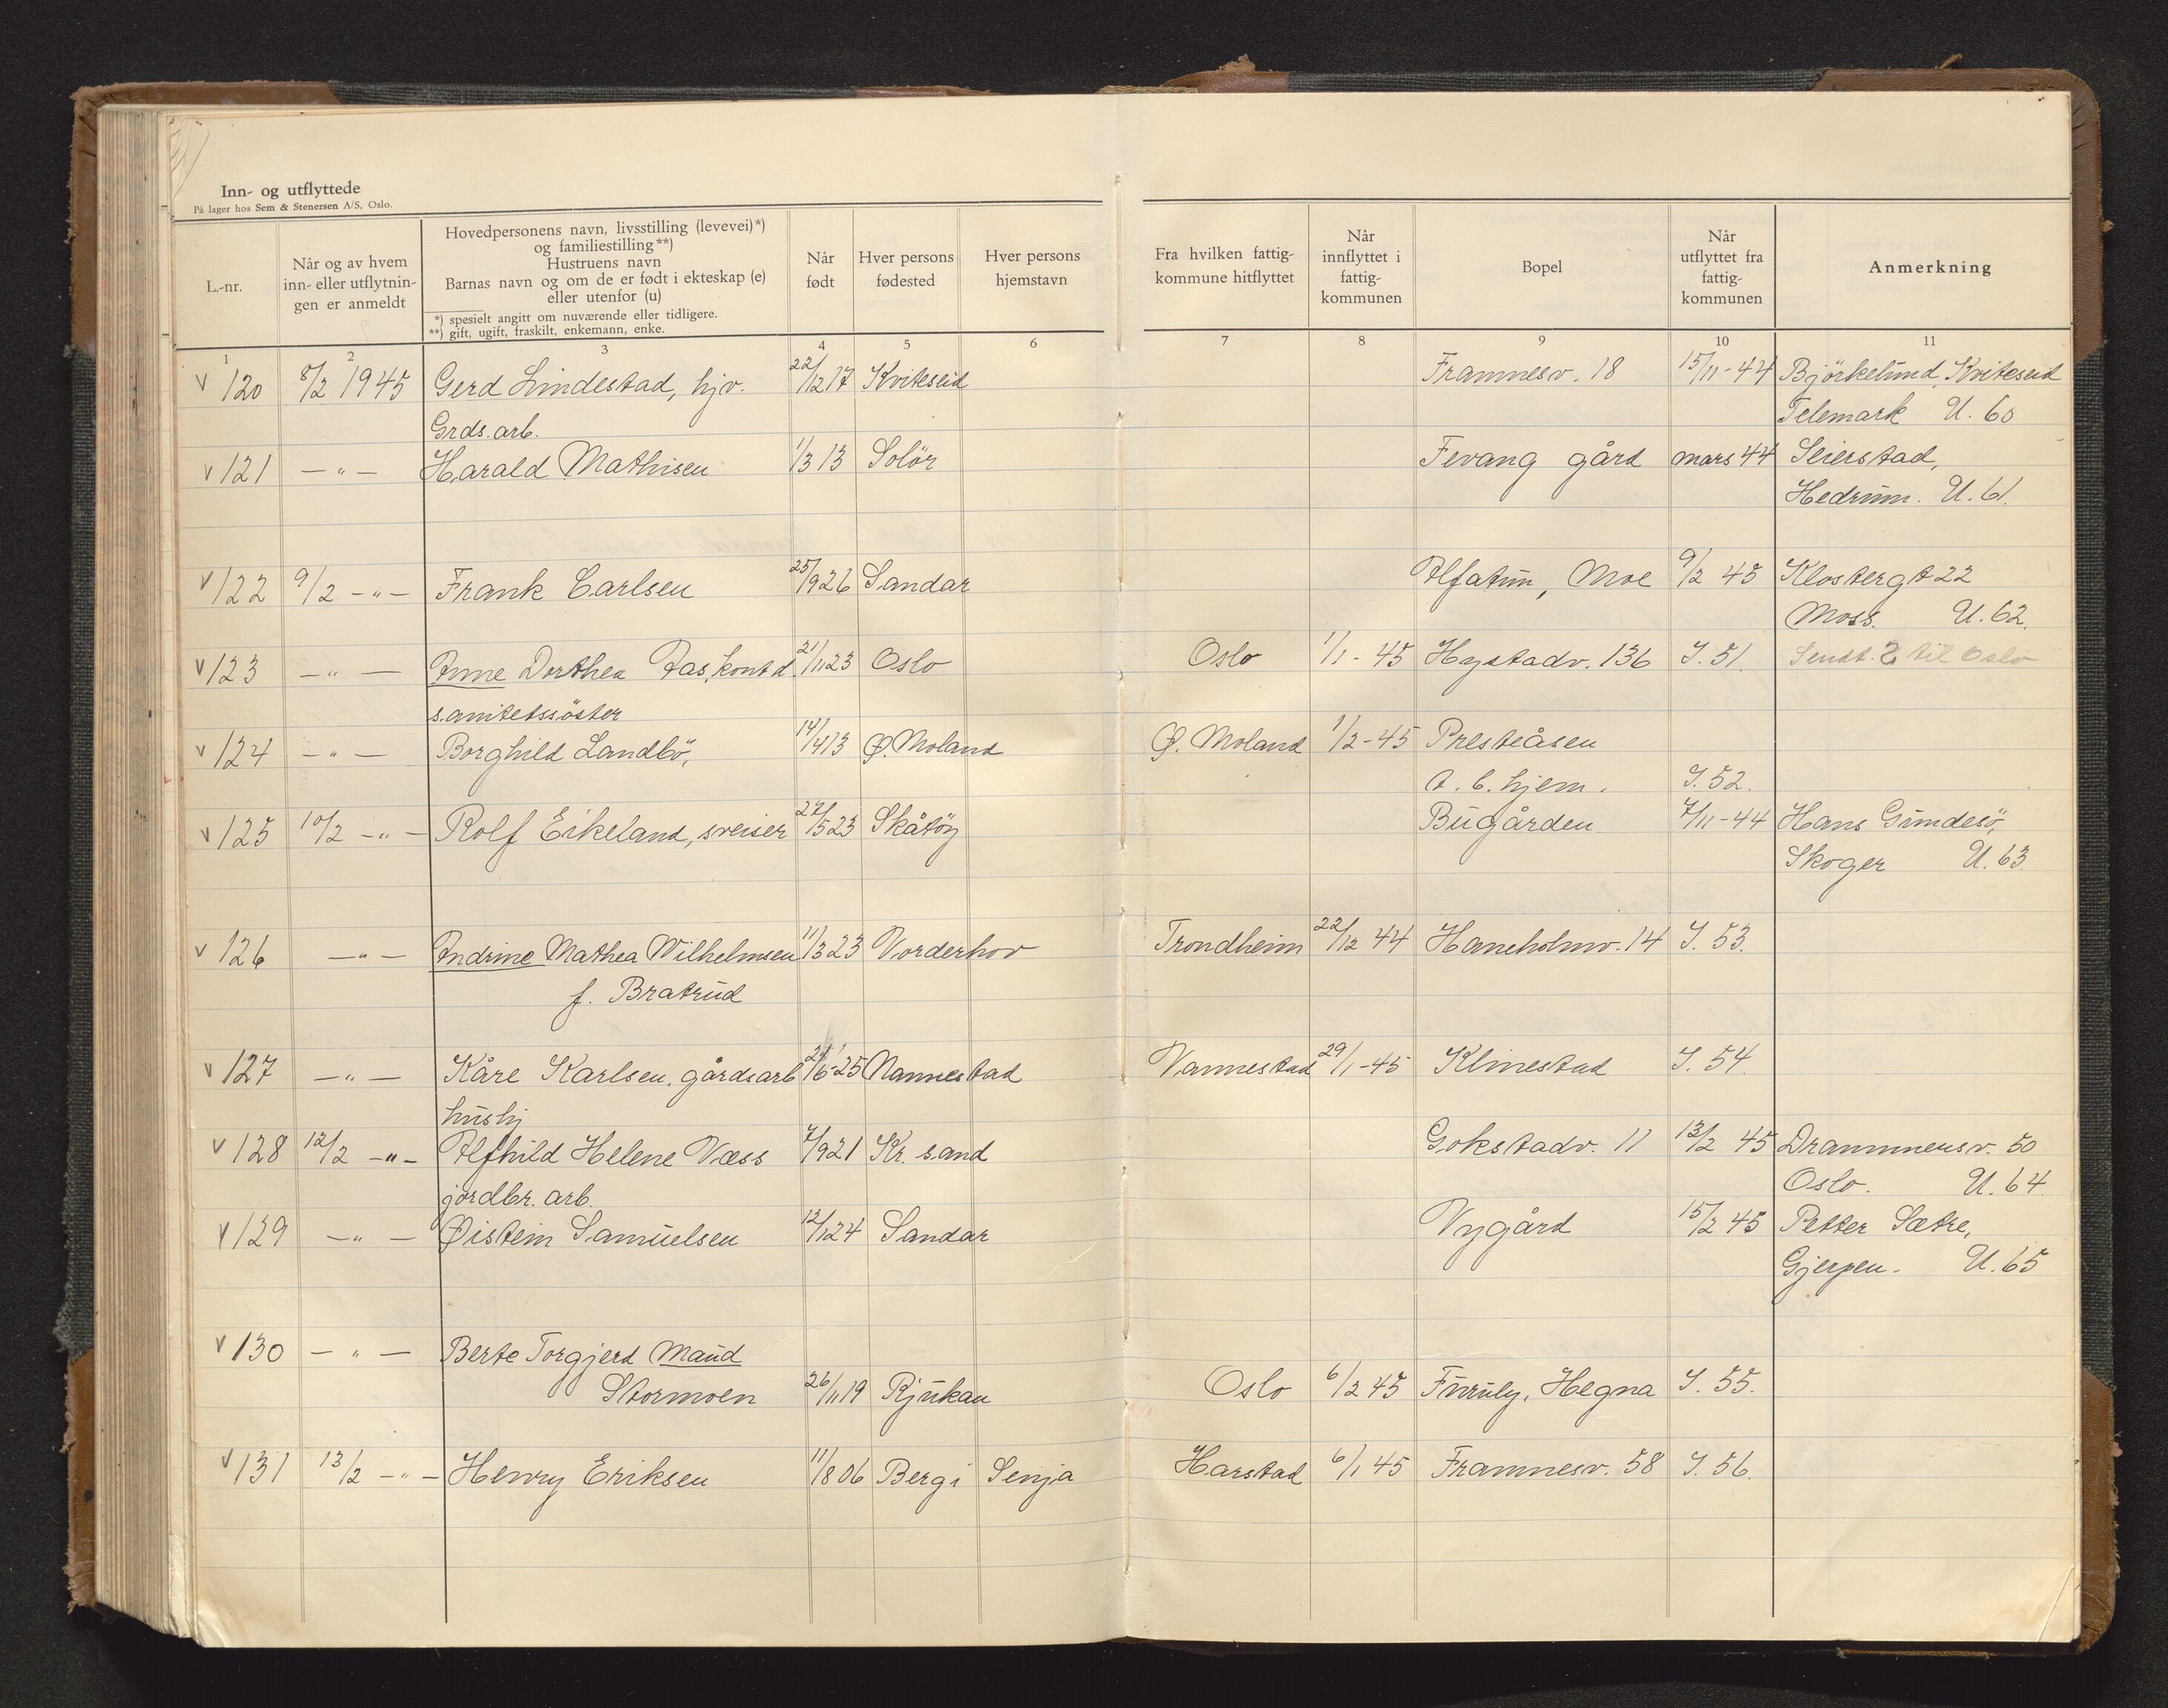 Inn- og utflyttede
På lager hos Sem & Stenersen A/S, Oslo.
L.-nr.
Når og av hvem
inn- eller utflytnin-
gen er anmeldt
Hovedpersonens navn, livsstilling (levevei)*)
og familiestilling**)
Hustruens navn
Barnas navn og om de er født i ekteskap (e)
eller utenfor (u)
*) spesielt angitt om nuværende eller tidligere.
**) gift, ugift, fraskilt, enkemann, enke.
Når
født
Hver persons
fødested
Hver persons
hjemstavn
Fra hvilken fattig-
kommune hitflyttet
Når
innflyttet i
fattig-
kommunen
Bopel
Når
utflyttet fra
fattig-
kommunen
Anmerkning
1 2 3 4 5 6 7 8 9 10 11
v 120 8/2 1945 Gerd Lindestad, hjv. 22/12 17 Kviteseid Framnesv. 18 15/11-44 Björkelund, Kviteseid
Grds. arb. Telemark U. 60
v 121 — " — Harald Mathisen 1/3 13 Solör Fevang gård mars 44 Seierstad,
Hedrum. U. 61.
v 122 9/2 - " - Frank Carlsen 25/9 26 Sandar Alfatun, Moe 9/2 45 Klostergt 22
Moss. U. 62.
v 123 — " — Anne Dorthea Aas, kontd. 21/11 23 Oslo Oslo 1/1 - 45 Hystadv. 136 I. 51. Sendt. 2 til Oslo
sanitetssöster
v 124 — " — Borghild Landbö, 14/4 13 Ø. Moland Ø. Moland 1/2-45 Presteåsen
t. b. hjem. I. 52.
v 125 10/2 - " — Rolf Eikeland, sveiser 27/5 23 Skåtöy Bugården 7/11-44 Hans Gundesö,
Skoger U. 63.
v 126 — " — Andrine Mathea Wilhelmsen 11/3 23 Norderhov Trondheim 22/12 44 Haneholmv. 14 I. 53.
f. Bratrud
v 127 — " — Kåre Karlsen, gårdsarb /6-25 Nannestad Nannestad 29/1-45 Klinestad I. 54.
hushj
v 128 12/2 - " - Alfhild Helene Næss 7/9 21 Kr. sand Gokstadv. 11 13/2 45 Drammensv. 50
jordbr. arb. Oslo. U. 64.
v 129 — " — Øistein Samuelsen 12/1 24 Sandar Nygård 15/2 45 Petter Sætre,
Gjerpen. U. 65
v 130 — " — Berte Torgjerd Maud
Stormoen 26/11 19 Rjukan Oslo 6/2 45 Furuly, Hegna I. 55.
v 131 13/2 - " — Henry Eriksen 11/8 06 Berg i Senja Harstad 6/1 45 Framnesv. 58 I. 56.